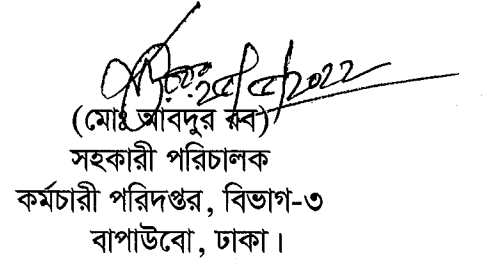 ২৫/৫/2022
(মোঃ আবদুর রব)
সহকারী পরিচালক
কর্মচারী পরিদপ্তর, বিভাগ-৩
বাপাউবো, ঢাকা।